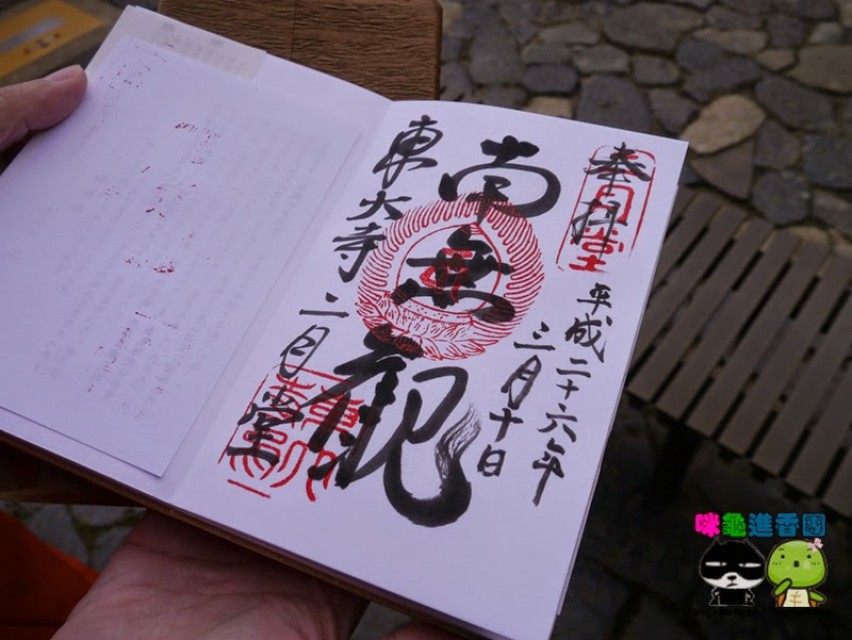 奉拝
平成二十六年
三月十日
南無観
東大寺
二月堂
咪龜進香團